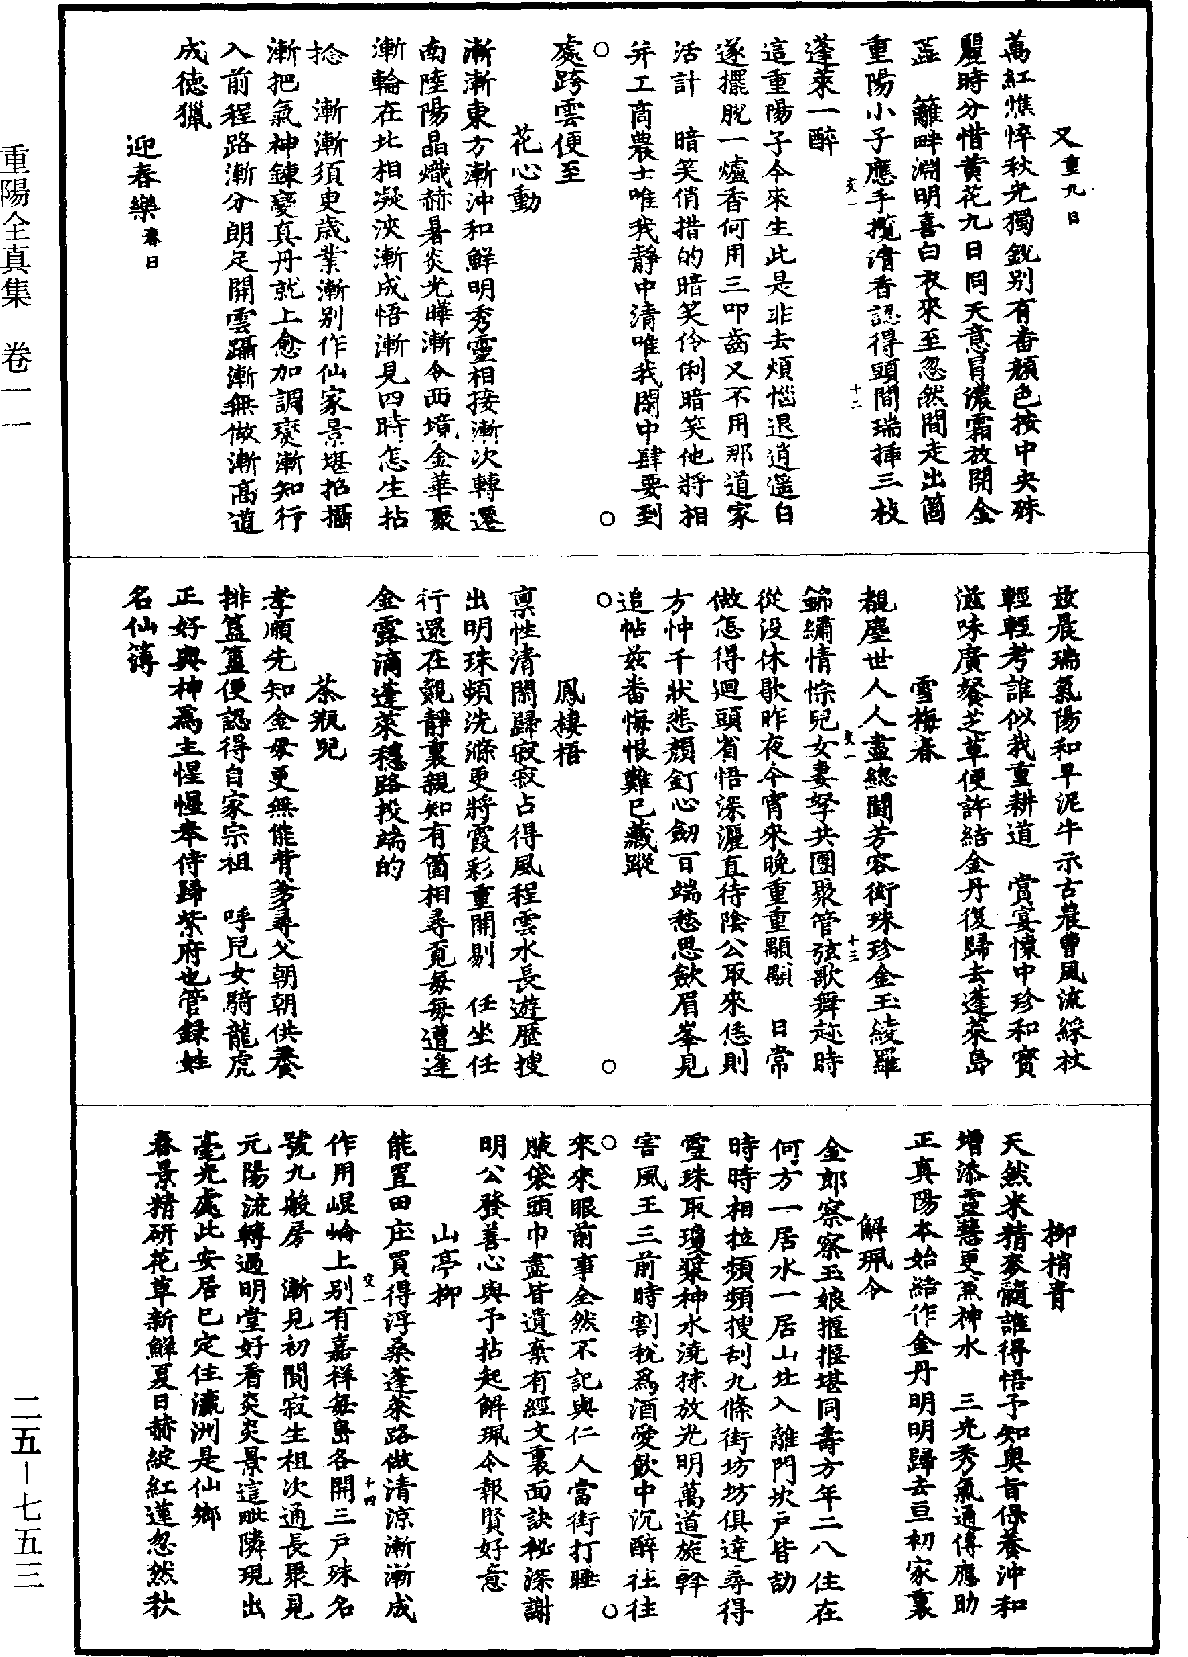 又重九日
萬紅憔悴秋光獨銳別有番顏色按中央殊
麗時分惜黃花九日同天意肎濃霜放開金
蕋　籬畔淵明喜白衣來至忽然間走出箇
重陽小子應手攬清香認得頭間瑞插三枝
蓬萊一醉
這重陽子今來生此是非去煩惱退逍遥自
遂擺脫一爐香何用三叩齒又不用那道家
活計　暗笑俏措的暗笑伶俐暗笑他將相
并工商農士唯我靜中清唯我閑中肆要到
處跨雲便至
花心動
漸漸東方漸沖和鮮明秀靈相接漸次轉遷
南陸陽晶熾赫暑炎光曄漸令西境金華聚
漸輪在北相凝浹漸成悟漸見四時怎生拈
捻　漸漸須史歲業漸別作仙家景堪招攝
漸把氣神鍊變真丹就上愈加調爕漸知行
入前程路漸分朗足開雲躡漸無做漸高道
成德獵
迎春樂春日
茲晨瑞氣陽和早泥牛示古農曹風流綵杖
輕輕考誰似我重耕道　賞宴懷中珍和寶
滋味廣餐芝草便許結金丹復歸去蓬萊島
雪梅春
覩塵世人人盡總閗芳容衒珠珍金玉綾羅
錦繡情悰兒女妻孥共團聚管弦歌舞趂時
從没休歇昨夜今宵來晚重重顯顯　日常
做怎得迴頭省悟深瀍直待陰公取來恁則
方忡千狀悲顏釘心劒百端愁思歛眉峯見
追帖兹畨悔恨難已藏蹤
鳳棲梧
禀性清閑歸寂寂占得風程雲水長遊歷搜
出明珠頻洗滌更將霞彩重開剔　任坐任
行還在覿靜裏親知有箇相尋覓每每遭逢
金露滴蓬萊穩路投端的
茶瓶兒
孝順先知金母更無能背爹尋父朝朝供養
排簋簠便認得自家宗祖　呼兒女騎龍虎
正好與神爲主惺惺奉侍歸紫府也管録姓
名仙簿
柳梢青
天然米精麥髓誰得悟予知奧旨保養沖和
增添靈慧更兼神水　三光秀氣通傳應助
正真陽本始結作金丹明明歸去亘初家裏
解珮令
金郎察察玉娘揠揠堪同壽方年二八住在
何方一居水一居山北入離門坎戶皆劼
時時相拉頻頻搜刮九條街坊坊俱達尋得
靈珠取瓊漿神水澆抹放光明萬道旋幹
害風王三前時割稅爲酒愛飲中沉醉往往
來來眼前事全然不記與仁人當街打睡
腋袋頭巾盡皆遺棄有經文裏面訣祕深謝
明公發善心與予拈起解珮令報賢好意
山亭柳
能置田庄買得浮桑蓬萊路做清涼漸漸成
作用崐崘上別有嘉祥每島各開三戸殊名
號九般房　漸見初閒寂生祖次通長聚見
元陽流轉過明堂好看炎炎景這毗隣現出
毫光處此安居已定住瀛洲是仙鄉
春景精研花草新鮮夏日赫綻紅蓮忽然秋
重陽全真集　卷一一
二五－七五三